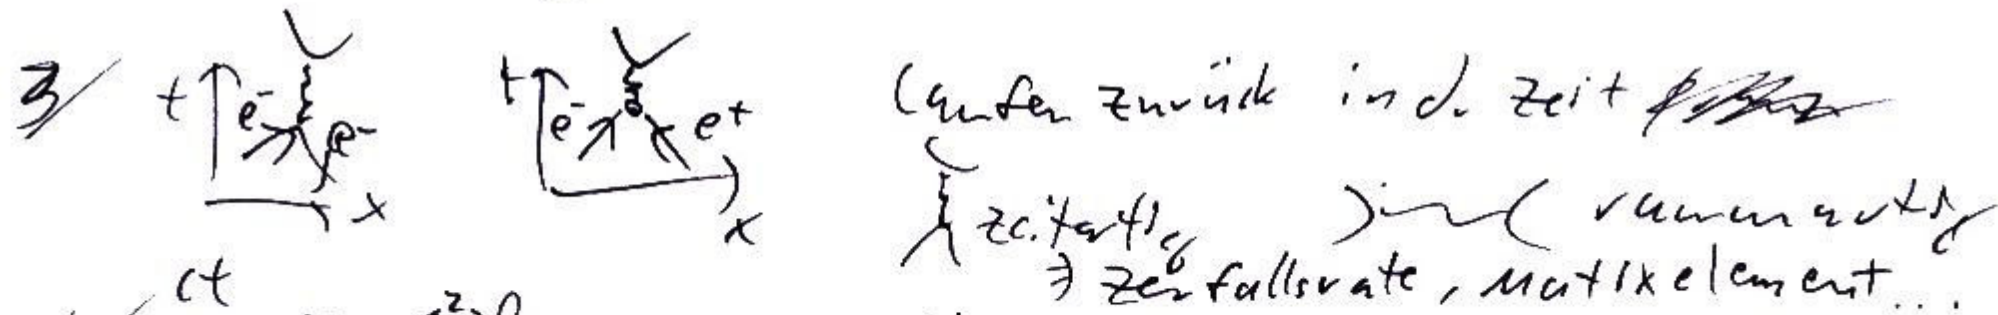 3/ t e⁻ e⁻ x t e⁻ e⁺ x laufen zurück in d. Zeit
zeitartig raumartig
⇒ Zerfallsrate, Matrixelement...
ct